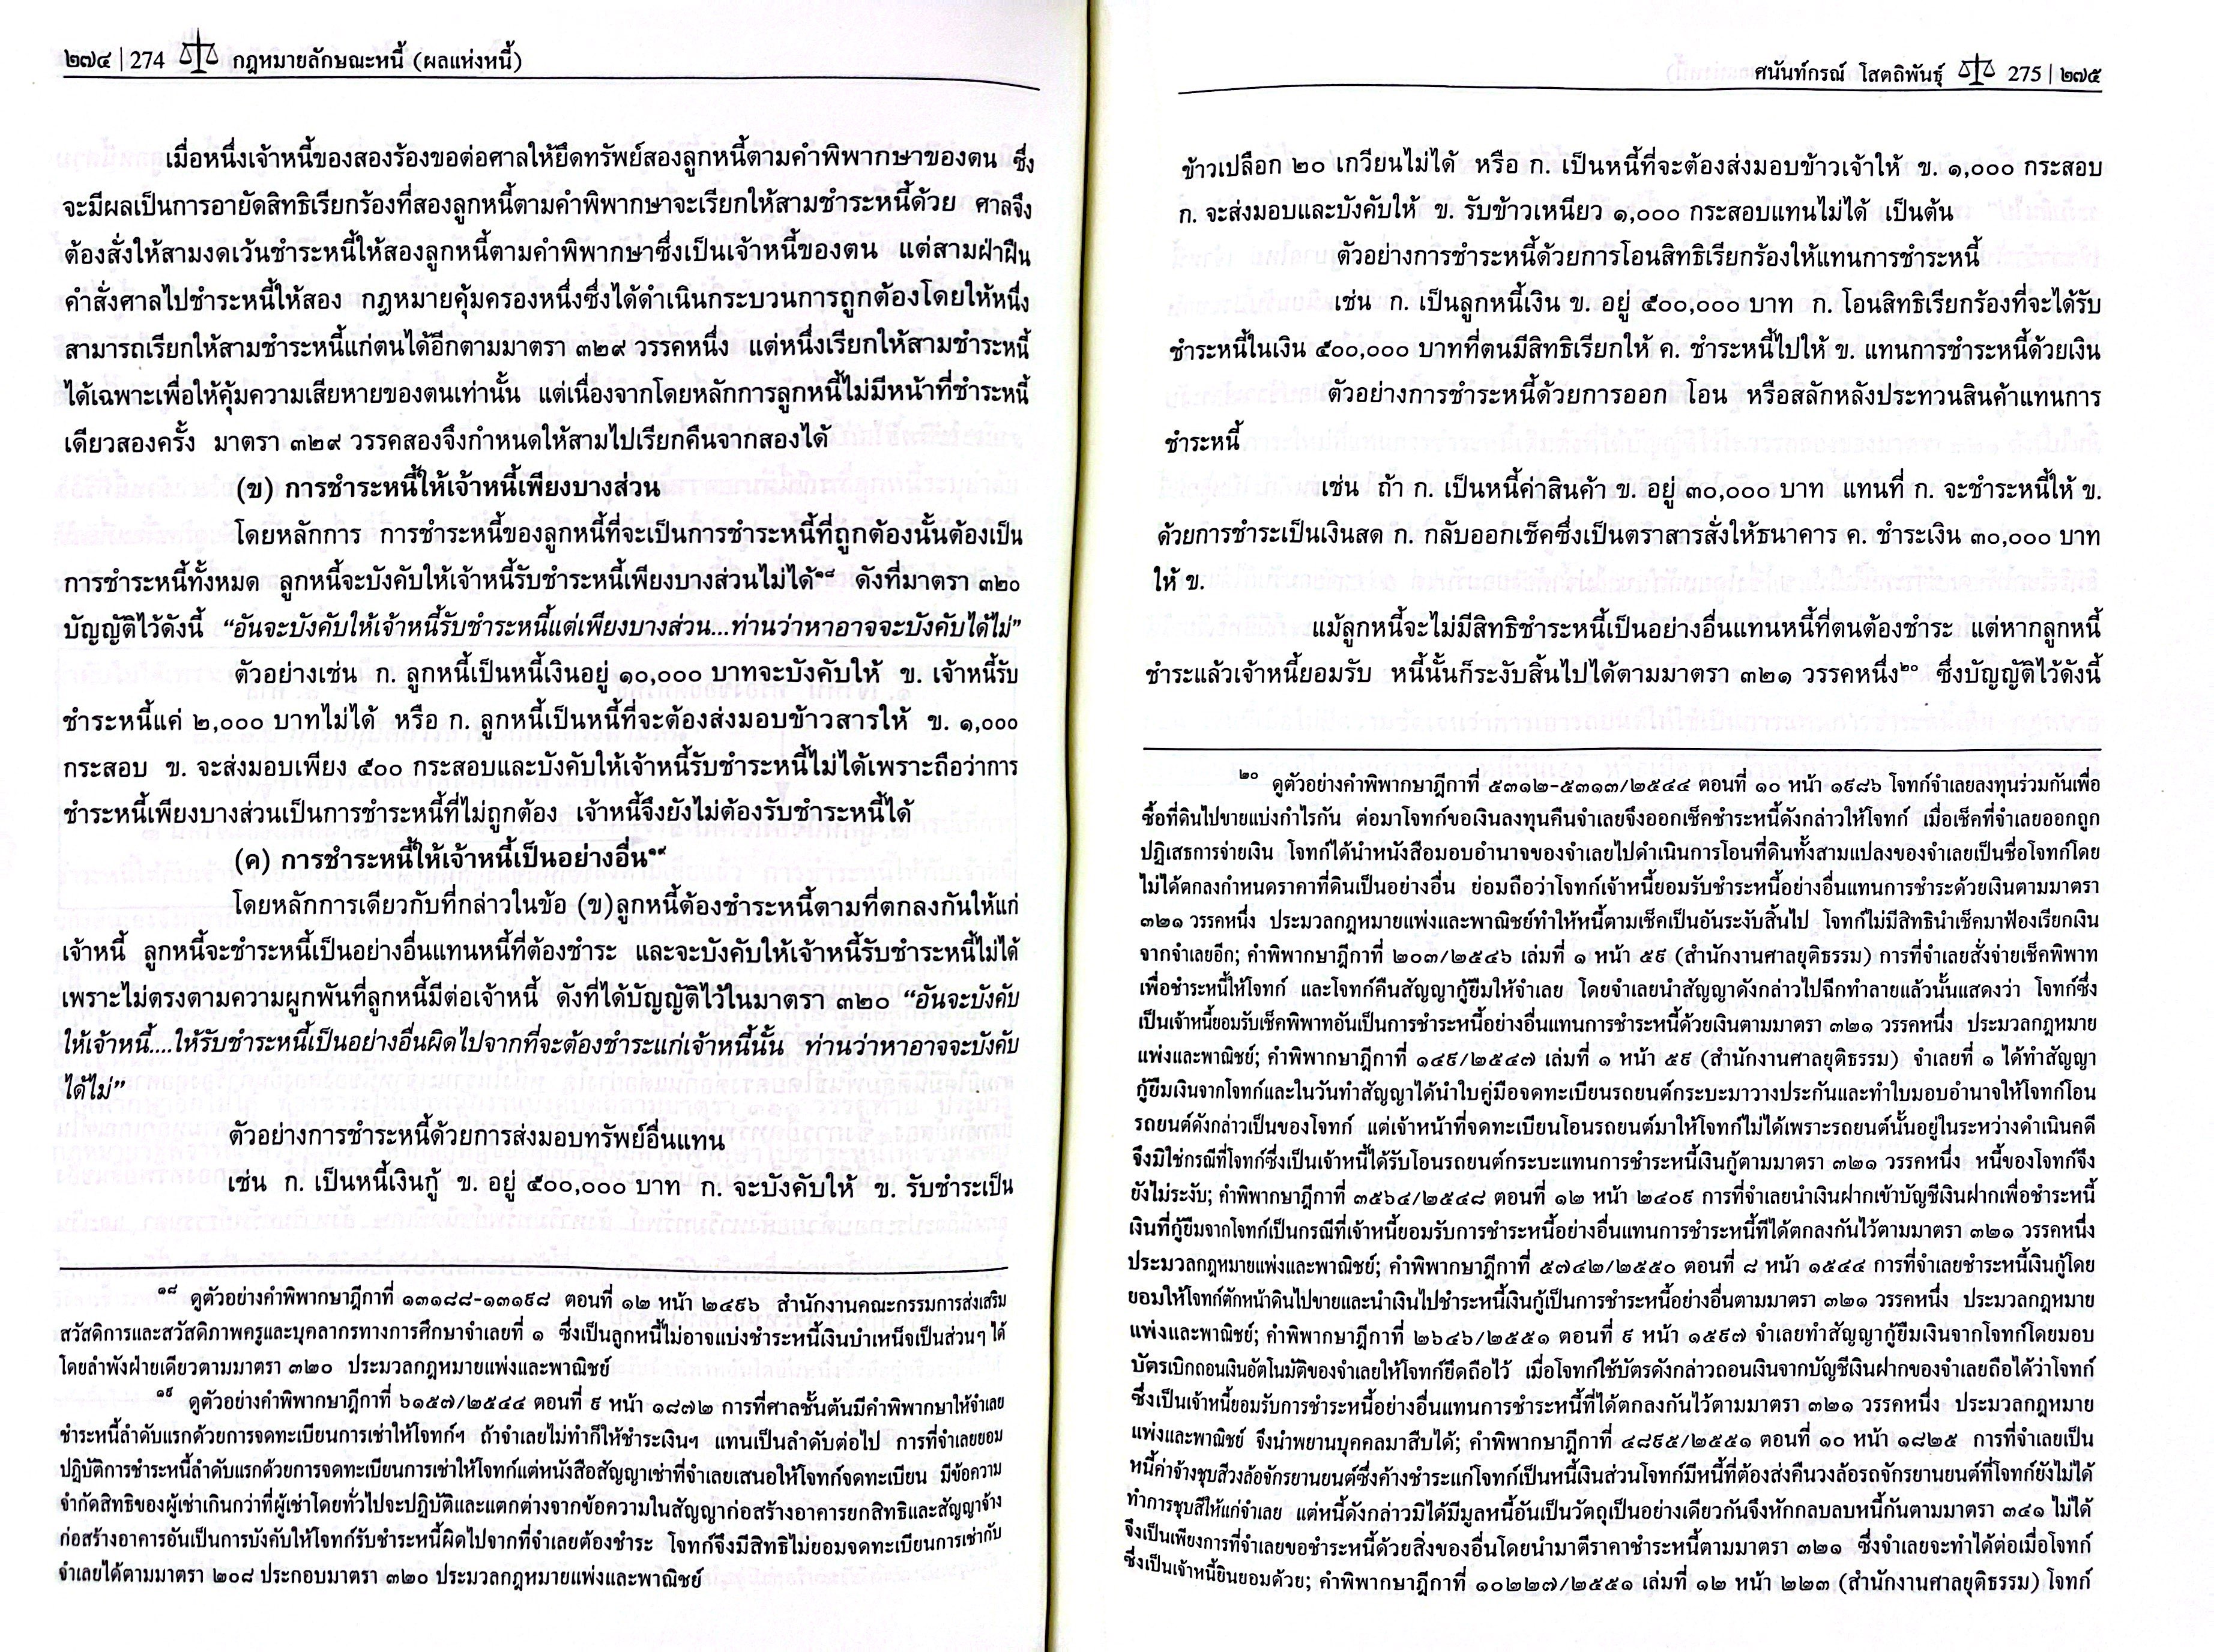 ๒๗๔ | 274 กฎหมายลักษณะหนี้ (ผลแห่งหนี้)
เมื่อหนึ่งเจ้าหนี้ของสองร้องขอต่อศาลให้ยึดทรัพย์สองลูกหนี้ตามคำพิพากษาของตน ซึ่ง
จะมีผลเป็นการอายัดสิทธิเรียกร้องที่สองลูกหนี้ตามคำพิพากษาจะเรียกให้สามชำระหนี้ด้วย ศาลจึง
ต้องสั่งให้สามงดเว้นชำระหนี้ให้สองลูกหนี้ตามคำพิพากษาซึ่งเป็นเจ้าหนี้ของตน แต่สามฝ่าฝืน
คำสั่งศาลไปชำระหนี้ให้สอง กฎหมายคุ้มครองหนึ่งซึ่งได้ดำเนินกระบวนการถูกต้องโดยให้หนึ่ง
สามารถเรียกให้สามชำระหนี้แก่ตนได้อีกตามมาตรา ๓๒๙ วรรคหนึ่ง แต่หนึ่งเรียกให้สามชำระหนี้
ได้เฉพาะเพื่อให้คุ้มความเสียหายของตนเท่านั้น แต่เนื่องจากโดยหลักการลูกหนี้ไม่มีหน้าที่ชำระหนี้
เดียวสองครั้ง มาตรา ๓๒๙ วรรคสองจึงกำหนดให้สามไปเรียกคืนจากสองได้
(ข) การชำระหนี้ให้เจ้าหนี้เพียงบางส่วน
โดยหลักการ การชำระหนี้ของลูกหนี้ที่จะเป็นการชำระหนี้ที่ถูกต้องนั้นต้องเป็น
การชำระหนี้ทั้งหมด ลูกหนี้จะบังคับให้เจ้าหนี้รับชำระหนี้เพียงบางส่วนไม่ได้๑๘ ดังที่มาตรา ๓๒๐
บัญญัติไว้ดังนี้ “อันจะบังคับให้เจ้าหนี้รับชำระหนี้แต่เพียงบางส่วน...ท่านว่าหาอาจจะบังคับได้ไม่”
ตัวอย่างเช่น ก. ลูกหนี้เป็นหนี้เงินอยู่ ๑๐,๐๐๐ บาทจะบังคับให้ ข. เจ้าหนี้รับ
ชำระหนี้แค่ ๒,๐๐๐ บาทไม่ได้ หรือ ก. ลูกหนี้เป็นหนี้ที่จะต้องส่งมอบข้าวสารให้ ข. ๑,๐๐๐
กระสอบ ข. จะส่งมอบเพียง ๕๐๐ กระสอบและบังคับให้เจ้าหนี้รับชำระหนี้ไม่ได้เพราะถือว่าการ
ชำระหนี้เพียงบางส่วนเป็นการชำระหนี้ที่ไม่ถูกต้อง เจ้าหนี้จึงยังไม่ต้องรับชำระหนี้ได้
(ค) การชำระหนี้ให้เจ้าหนี้เป็นอย่างอื่น๑๙
โดยหลักการเดียวกับที่กล่าวในข้อ (ข)ลูกหนี้ต้องชำระหนี้ตามที่ตกลงกันให้แก่
เจ้าหนี้ ลูกหนี้จะชำระหนี้เป็นอย่างอื่นแทนหนี้ที่ต้องชำระ และจะบังคับให้เจ้าหนี้รับชำระหนี้ไม่ได้
เพราะไม่ตรงตามความผูกพันที่ลูกหนี้มีต่อเจ้าหนี้ ดังที่ได้บัญญัติไว้ในมาตรา ๓๒๐ “อันจะบังคับ
ให้เจ้าหนี้....ให้รับชำระหนี้เป็นอย่างอื่นผิดไปจากที่จะต้องชำระแก่เจ้าหนี้นั้น ท่านว่าหาอาจจะบังคับ
ได้ไม่”
ตัวอย่างการชำระหนี้ด้วยการส่งมอบทรัพย์อื่นแทน
เช่น ก. เป็นหนี้เงินกู้ ข. อยู่ ๕๐๐,๐๐๐ บาท ก. จะบังคับให้ ข. รับชำระเป็น
๑๘ ดูตัวอย่างคำพิพากษาฎีกาที่ ๑๓๑๘๘-๑๓๑๙๘ ตอนที่ ๑๒ หน้า ๒๔๙๖ สำนักงานคณะกรรมการส่งเสริม
สวัสดิการและสวัสดิภาพครูและบุคลากรทางการศึกษาจำเลยที่ ๑ ซึ่งเป็นลูกหนี้ไม่อาจแบ่งชำระหนี้เงินบำเหน็จเป็นส่วนๆ ได้
โดยลำพังฝ่ายเดียวตามมาตรา ๓๒๐ ประมวลกฎหมายแพ่งและพาณิชย์
๑๙ ดูตัวอย่างคำพิพากษาฎีกาที่ ๖๑๕๗/๒๕๔๔ ตอนที่ ๙ หน้า ๑๘๗๒ การที่ศาลชั้นต้นมีคำพิพากษาให้จำเลย
ชำระหนี้ลำดับแรกด้วยการจดทะเบียนการเช่าให้โจทก์ฯ ถ้าจำเลยไม่ทำก็ให้ชำระเงินฯ แทนเป็นลำดับต่อไป การที่จำเลยยอม
ปฏิบัติการชำระหนี้ลำดับแรกด้วยการจดทะเบียนการเช่าให้โจทก์แต่หนังสือสัญญาเช่าที่จำเลยเสนอให้โจทก์จดทะเบียน มีข้อความ
จำกัดสิทธิของผู้เช่าเกินกว่าที่ผู้เช่าโดยทั่วไปจะปฏิบัติและแตกต่างจากข้อความในสัญญาก่อสร้างอาคารยกสิทธิและสัญญาจ้าง
ก่อสร้างอาคารอันเป็นการบังคับให้โจทก์รับชำระหนี้ผิดไปจากที่จำเลยต้องชำระ โจทก์จึงมีสิทธิไม่ยอมจดทะเบียนการเช่ากับ
จำเลยได้ตามมาตรา ๒๐๘ ประกอบมาตรา ๓๒๐ ประมวลกฎหมายแพ่งและพาณิชย์
ศนันท์กรณ์ โสตถิพันธุ์ 275 | ๒๗๕
ข้าวเปลือก ๒๐ เกวียนไม่ได้ หรือ ก. เป็นหนี้ที่จะต้องส่งมอบข้าวเจ้าให้ ข. ๑,๐๐๐ กระสอบ
ก. จะส่งมอบและบังคับให้ ข. รับข้าวเหนียว ๑,๐๐๐ กระสอบแทนไม่ได้ เป็นต้น
ตัวอย่างการชำระหนี้ด้วยการโอนสิทธิเรียกร้องให้แทนการชำระหนี้
เช่น ก. เป็นลูกหนี้เงิน ข. อยู่ ๕๐๐,๐๐๐ บาท ก.โอนสิทธิเรียกร้องที่จะได้รับ
ชำระหนี้ในเงิน ๕๐๐,๐๐๐ บาทที่ตนมีสิทธิเรียกให้ ค. ชำระหนี้ไปให้ ข. แทนการชำระหนี้ด้วยเงิน
ตัวอย่างการชำระหนี้ด้วยการออก โอน หรือสลักหลังประทวนสินค้าแทนการ
ชำระหนี้
เช่น ถ้า ก. เป็นหนี้ค่าสินค้า ข. อยู่ ๓๐,๐๐๐ บาท แทนที่ ก. จะชำระหนี้ให้ ข.
ด้วยการชำระเป็นเงินสด ก. กลับออกเช็คซึ่งเป็นตราสารสั่งให้ธนาคาร ค. ชำระเงิน ๓๐,๐๐๐ บาท
ให้ ข.
แม้ลูกหนี้จะไม่มีสิทธิชำระหนี้เป็นอย่างอื่นแทนหนี้ที่ตนต้องชำระ แต่หากลูกหนี้
ชำระแล้วเจ้าหนี้ยอมรับ หนี้นั้นก็ระงับสิ้นไปได้ตามมาตรา ๓๒๑ วรรคหนึ่ง๒๐ ซึ่งบัญญัติไว้ดังนี้
๒๐ ดูตัวอย่างคำพิพากษาฎีกาที่ ๕๓๑๒-๕๓๑๓/๒๕๔๔ ตอนที่ ๑๐ หน้า ๑๙๘๖ โจทก์จำเลยลงทุนร่วมกันเพื่อ
ซื้อที่ดินไปขายแบ่งกำไรกัน ต่อมาโจทก์ขอเงินลงทุนคืนจำเลยจึงออกเช็คชำระหนี้ดังกล่าวให้โจทก์ เมื่อเช็คที่จำเลยออกถูก
ปฏิเสธการจ่ายเงิน โจทก์ได้นำหนังสือมอบอำนาจของจำเลยไปดำเนินการโอนที่ดินทั้งสามแปลงของจำเลยเป็นชื่อโจทก์โดย
ไม่ได้ตกลงกำหนดราคาที่ดินเป็นอย่างอื่น ย่อมถือว่าโจทก์เจ้าหนี้ยอมรับชำระหนี้อย่างอื่นแทนการชำระด้วยเงินตามมาตรา
๓๒๑ วรรคหนึ่ง ประมวลกฎหมายแพ่งและพาณิชย์ทำให้หนี้ตามเช็คเป็นอันระงับสิ้นไป โจทก์ไม่มีสิทธินำเช็คมาฟ้องเรียกเงิน
จากจำเลยอีก; คำพิพากษาฎีกาที่ ๒๐๓/๒๕๔๖ เล่มที่ ๑ หน้า ๕๙ (สำนักงานศาลยุติธรรม) การที่จำเลยสั่งจ่ายเช็คพิพาท
เพื่อชำระหนี้ให้โจทก์ และโจทก์คืนสัญญากู้ยืมให้จำเลย โดยจำเลยนำสัญญาดังกล่าวไปฉีกทำลายแล้วนั้นแสดงว่า โจทก์ซึ่ง
เป็นเจ้าหนี้ยอมรับเช็คพิพาทอันเป็นการชำระหนี้อย่างอื่นแทนการชำระหนี้ด้วยเงินตามมาตรา ๓๒๑ วรรคหนึ่ง ประมวลกฎหมาย
แพ่งและพาณิชย์; คำพิพากษาฎีกาที่ ๑๔๙/๒๕๔๗ เล่มที่ ๑ หน้า ๕๙ (สำนักงานศาลยุติธรรม) จำเลยที่ ๑ ได้ทำสัญญา
กู้ยืมเงินจากโจทก์และในวันทำสัญญาได้นำใบคู่มือจดทะเบียนรถยนต์กระบะมาวางประกันและทำใบมอบอำนาจให้โจทก์โอน
รถยนต์ดังกล่าวเป็นของโจทก์ แต่เจ้าหน้าที่จดทะเบียนโอนรถยนต์มาให้โจทก์ไม่ได้เพราะรถยนต์นั้นอยู่ในระหว่างดำเนินคดี
จึงมิใช่กรณีที่โจทก์ซึ่งเป็นเจ้าหนี้ได้รับโอนรถยนต์กระบะแทนการชำระหนี้เงินกู้ตามมาตรา ๓๒๑ วรรคหนึ่ง หนี้ของโจทก์จึง
ยังไม่ระงับ; คำพิพากษาฎีกาที่ ๓๕๖๔/๒๕๔๘ ตอนที่ ๑๒ หน้า ๒๔๐๙ การที่จำเลยนำเงินฝากเข้าบัญชีเงินฝากเพื่อชำระหนี้
เงินที่กู้ยืมจากโจทก์เป็นกรณีที่เจ้าหนี้ยอมรับการชำระหนี้อย่างอื่นแทนการชำระหนี้ที่ได้ตกลงกันไว้ตามมาตรา ๓๒๑ วรรคหนึ่ง
ประมวลกฎหมายแพ่งและพาณิชย์; คำพิพากษาฎีกาที่ ๕๗๔๒/๒๕๕๐ ตอนที่ ๘ หน้า ๑๕๔๔ การที่จำเลยชำระหนี้เงินกู้โดย
ยอมให้โจทก์ตักหน้าดินไปขายและนำเงินไปชำระหนี้เงินกู้เป็นการชำระหนี้อย่างอื่นตามมาตรา ๓๒๑ วรรคหนึ่ง ประมวลกฎหมาย
แพ่งและพาณิชย์; คำพิพากษาฎีกาที่ ๒๖๔๖/๒๕๕๑ ตอนที่ ๙ หน้า ๑๕๙๗ จำเลยทำสัญญากู้ยืมเงินจากโจทก์โดยมอบ
บัตรเบิกถอนเงินอัตโนมัติของจำเลยให้โจทก์ยึดถือไว้ เมื่อโจทก์ใช้บัตรดังกล่าวถอนเงินจากบัญชีเงินฝากของจำเลยถือได้ว่าโจทก์
ซึ่งเป็นเจ้าหนี้ยอมรับการชำระหนี้อย่างอื่นแทนการชำระหนี้ที่ได้ตกลงกันไว้ตามมาตรา ๓๒๑ วรรคหนึ่ง ประมวลกฎหมาย
แพ่งและพาณิชย์ จึงนำพยานบุคคลมาสืบได้; คำพิพากษาฎีกาที่ ๔๘๙๕/๒๕๕๑ ตอนที่ ๑๐ หน้า ๑๘๒๕ การที่จำเลยเป็น
หนี้ค่าจ้างชุบสีวงล้อจักรยานยนต์ซึ่งค้างชำระแก่โจทก์เป็นหนี้เงินส่วนโจทก์มีหนี้ที่ต้องส่งคืนวงล้อรถจักรยานยนต์ที่โจทก์ยังไม่ได้
ทำการชุบสีให้แก่จำเลย แต่หนี้ดังกล่าวมิได้มีมูลหนี้อันเป็นวัตถุเป็นอย่างเดียวกันจึงหักกลบลบหนี้กันตามมาตรา ๓๔๑ ไม่ได้
จึงเป็นเพียงการที่จำเลยขอชำระหนี้ด้วยสิ่งของอื่นโดยนำมาตีราคาชำระหนี้ตามมาตรา ๓๒๑ ซึ่งจำเลยจะทำได้ต่อเมื่อโจทก์
ซึ่งเป็นเจ้าหนี้ยินยอมด้วย; คำพิพากษาฎีกาที่ ๑๐๒๒๗/๒๕๕๑ เล่มที่ ๑๒ หน้า ๒๒๓ (สำนักงานศาลยุติธรรม) โจทก์